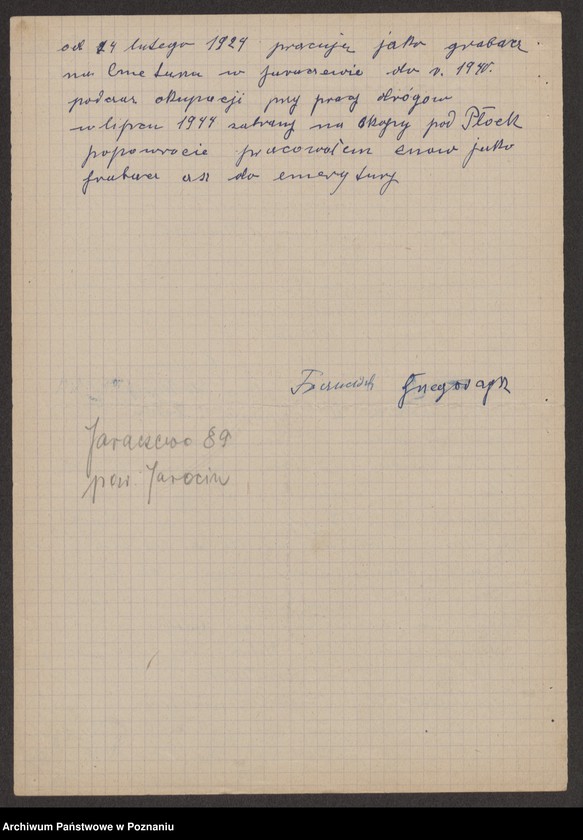 od 14 lutego 1924 pracuję jako grabarz
na Cmetażu w Jaraczewie do r. 1940.
podczas okupacji przy pracy drógow
w lipcu 1944 zabrany na Okopy pod Płock
popowrocie pracowałem znow jako
grabarz asz do emerytury
Franciszek Grzegorczyk
Jaraczewo 89
pow. Jarocin
Archiwum Państwowe w Poznaniu